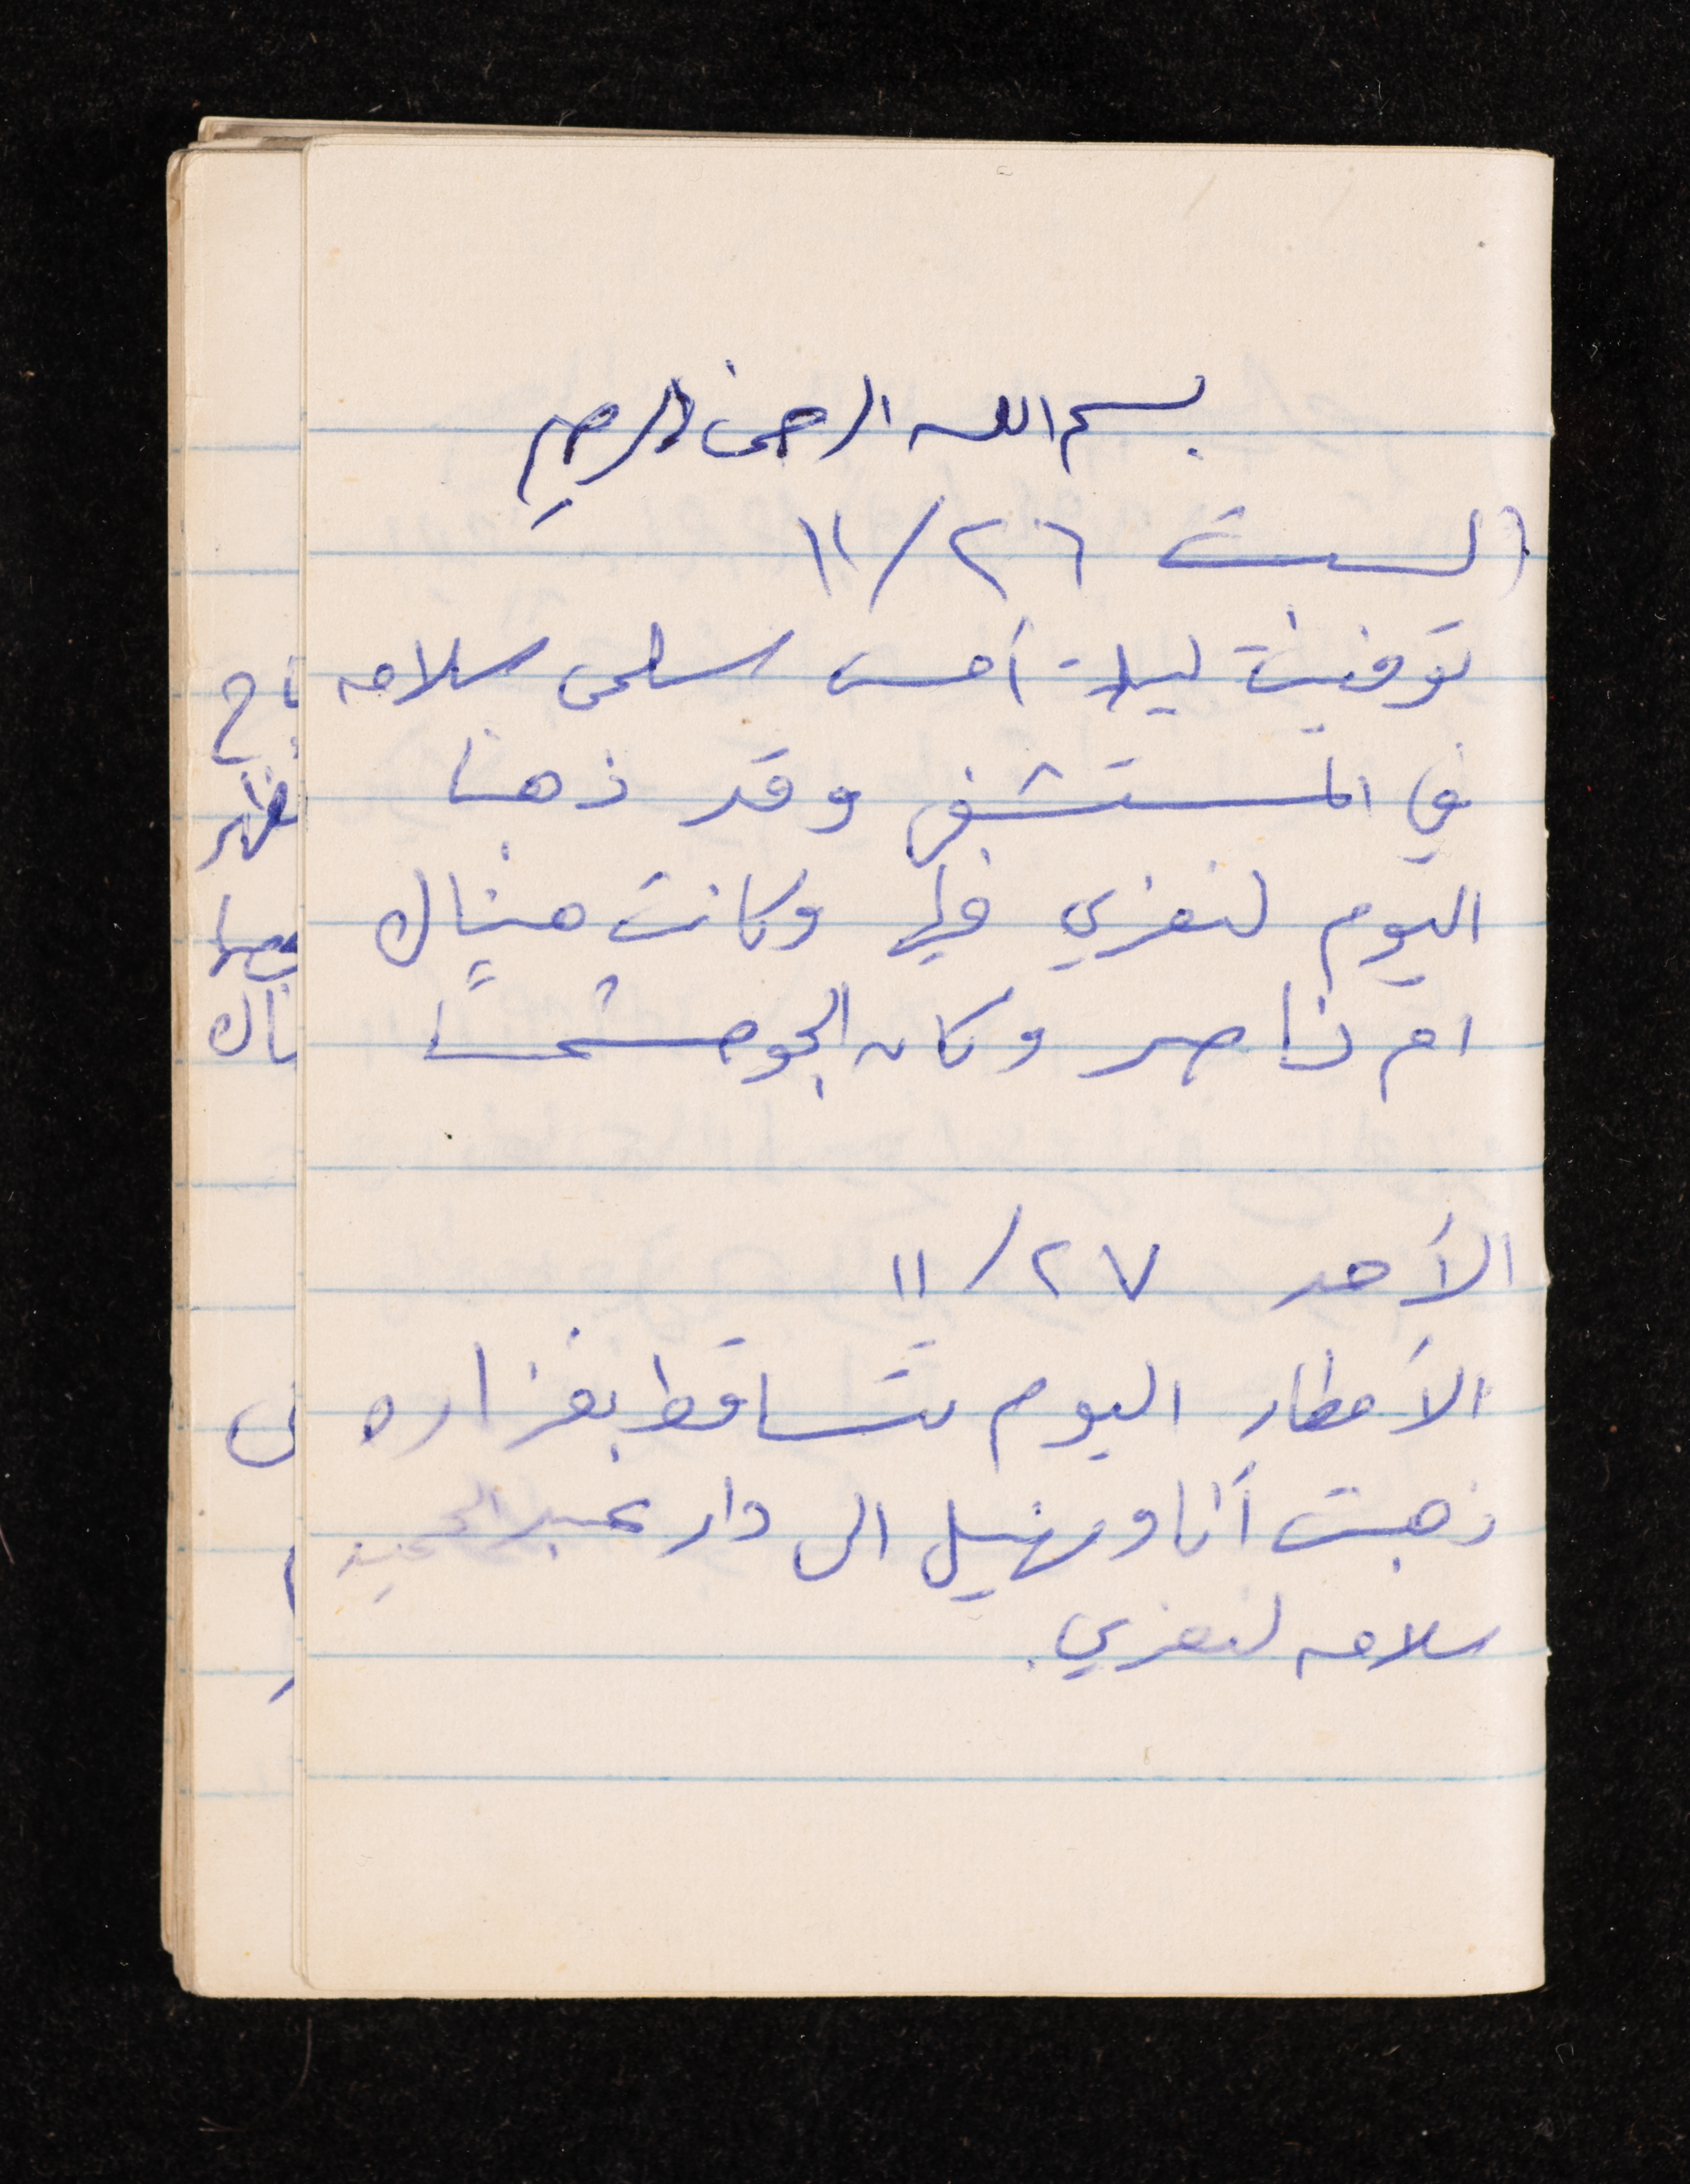 بسم الله الرحمن الرحيم
السبت ٢٦/١١
توفيت ليلة أمس سلمى سلامه
في المستشفى وقد ذهبنا
اليوم لنعزي فيها وكانت هناك
ام ناصر وكان الجو مشمسا
الأحد ٢٧/١١
الأمطار اليوم تتساقط بغزاره
ذهبت أنا و الى دار عبد الحميد
سلامه لنعزي.